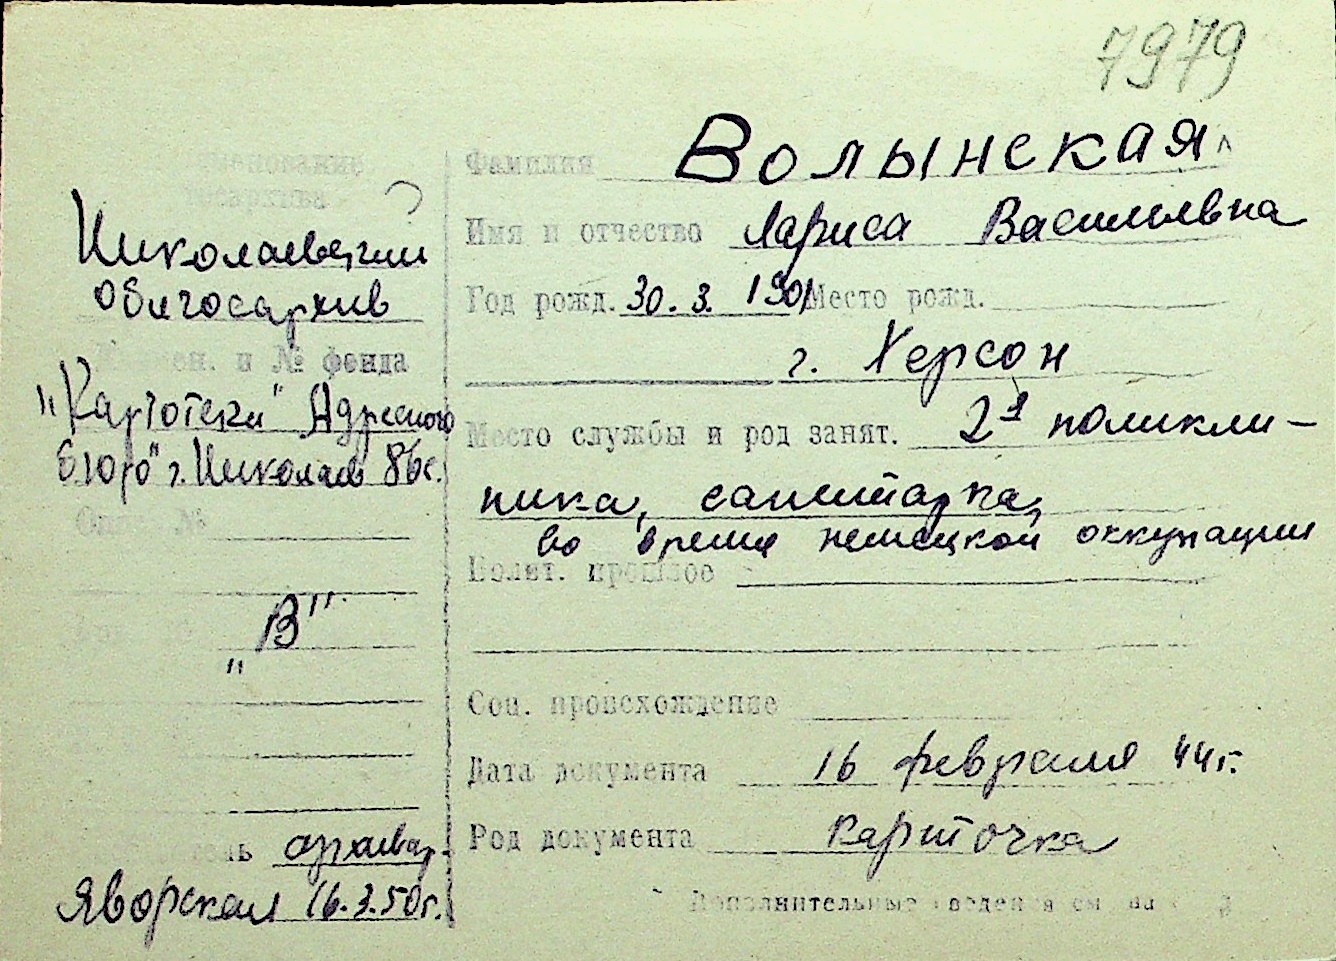 7979
Наименование
госархива
Николаевский
Облгосархив
Наимен. и № фонда
"Картотеки" Адресного
бюро" г. Николаев
Опись №
"В"
архивар.
Яворская 16.3.50г.
Фамилия Волынская
Имя и отчество Лариса Васильевна
Год рожд. 30.3.1901 Место рожд.
г. Херсон
Место службы и род занят. 2я поликли-
ника, санитарка,
во время немецкой оккупации
Полит. прошлое
Соц. происхождение
Дата документа 16 февраля 44г.
Род документа Карточка
Дополнительные сведения см. на